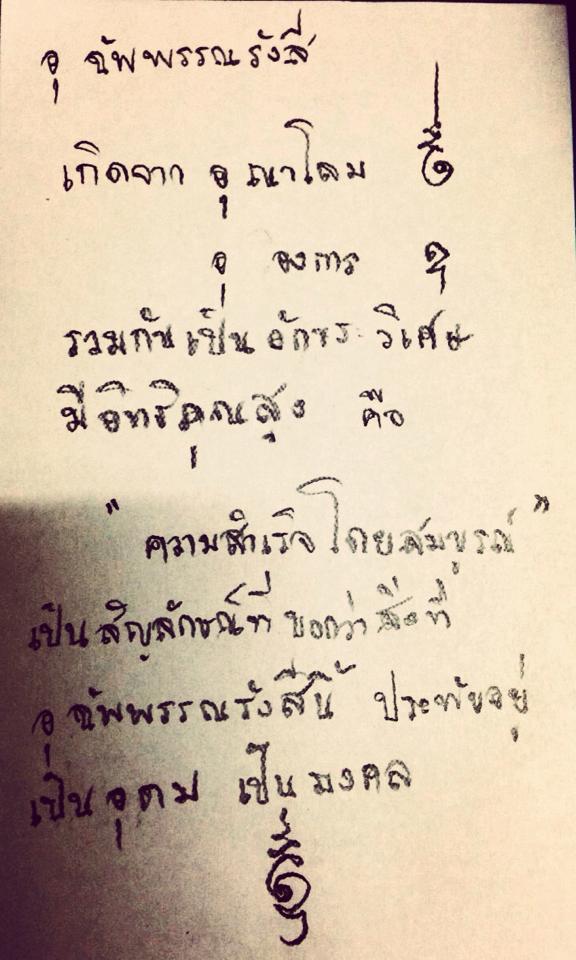 อุ ฉัพพรรณรังสี
เกิดจาก อุณาโลม
อุ องการ
รวมกันเป็นอักขระวิเศษ
มีอิทธิคุณสูง คือ
"ความสำเร็จโดยสมบูรณ์"
เป็นสัญลักษณ์ที่บอกว่าสิ่งที่
อุ ฉัพพรรณรังสีนี้ ประทับอยู่
เป็นอุดม เป็นมงคล